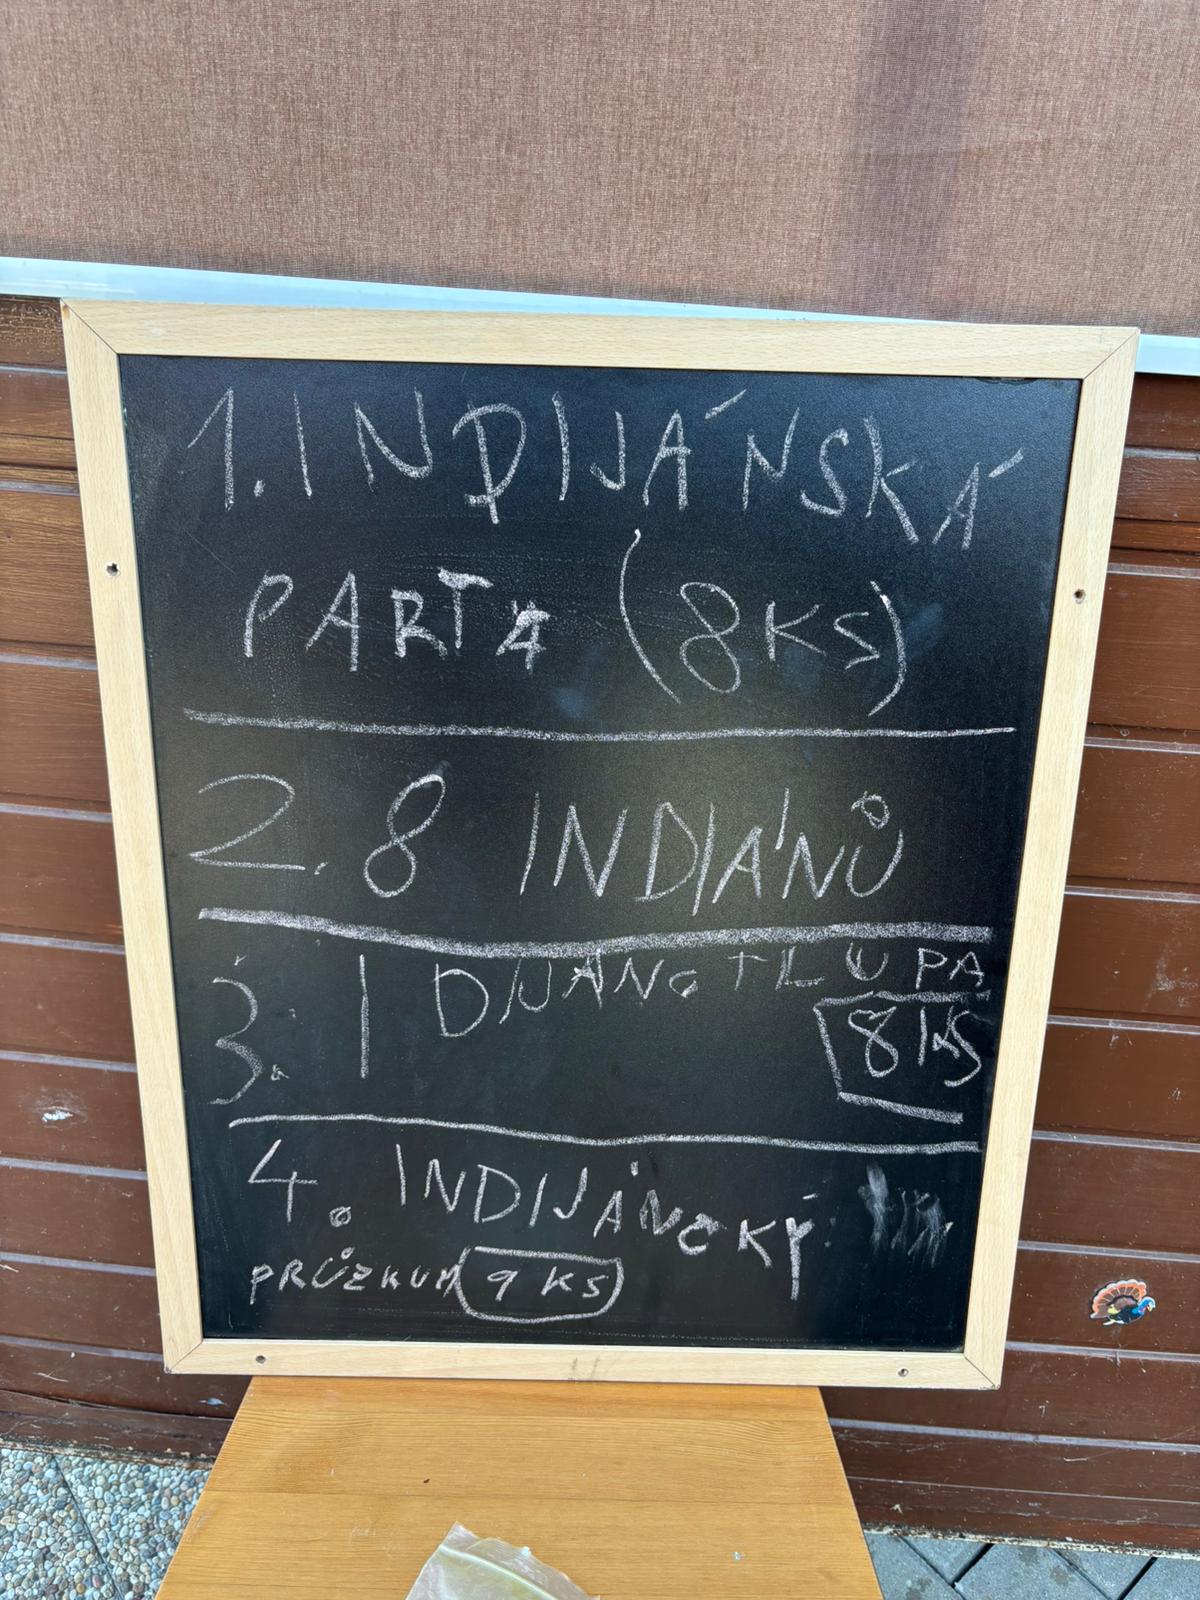 1. INDIJÁNSKÁ
PARTA (8KS)
2. 8 INDIÁNŮ
3. I DIJÁNC TLUPA
8 KS
4. INDIJÁNCKÝ
PRŮZKUM 9 KS